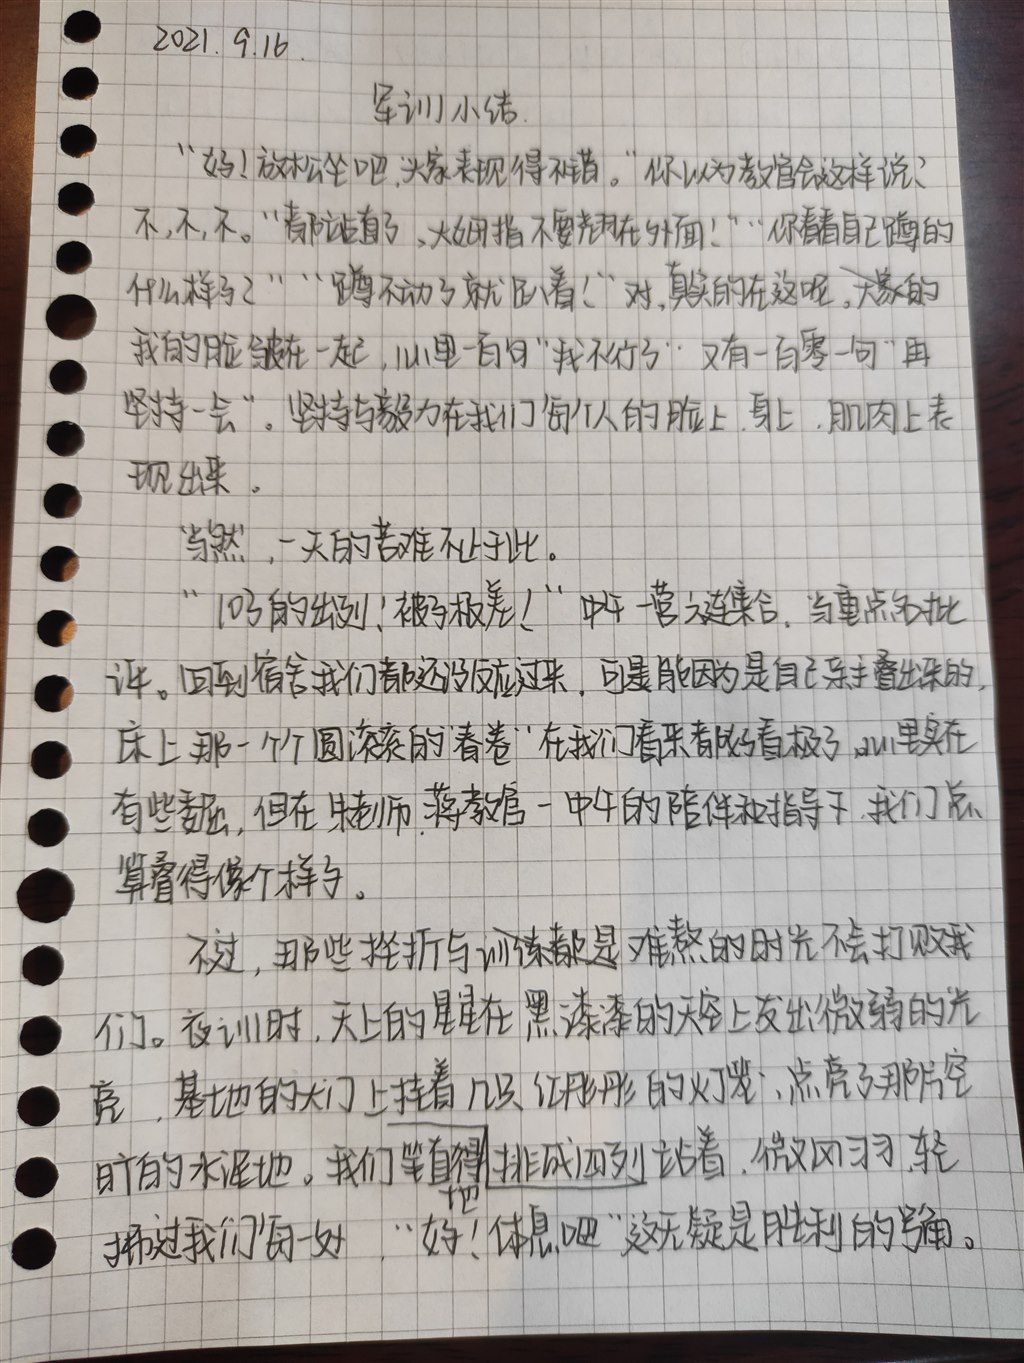 2021.9.16.
军训小结.
"好！放松坐吧，大家表现得不错。"你以为教官会这样说？
不，不，不。"都站直了，大姆指不要翘在外面！""你看看自己蹲的
什么样子？""蹲不动了就趴着！"对，真实的在这呢，大家的
我的脸皱在一起，心里一百句"我不行了"又有一百零一句"再
坚持一会"。坚持与毅力在我们每个人的脸上，身上，肌肉上表
现出来。
当然，一天的苦难不止于此。
"103的出列！被子极差！"中午一营六连集合，当重点名批
评。回到宿舍我们都还没反应过来，可是能因为是自己亲手叠出来的，
床上那一个个圆滚滚的"春卷"在我们看来都好看极了，心里实在
有些委屈，但在朱老师，蒋教官一中午的陪伴和指导下，我们总
算叠得像个样子。
不过，那些挫折与训练都是难熬的时光不会打败我
们。夜训时，天上的星星在黑漆漆的天空上发出微弱的光
亮，基地的大门上挂着几只红彤彤的灯笼，点亮了那片空
旷的水泥地。我们笔直得排成四列站着，微风习习，轻
地
拂过我们每一处，"好！休息吧"这无疑是胜利的号角。